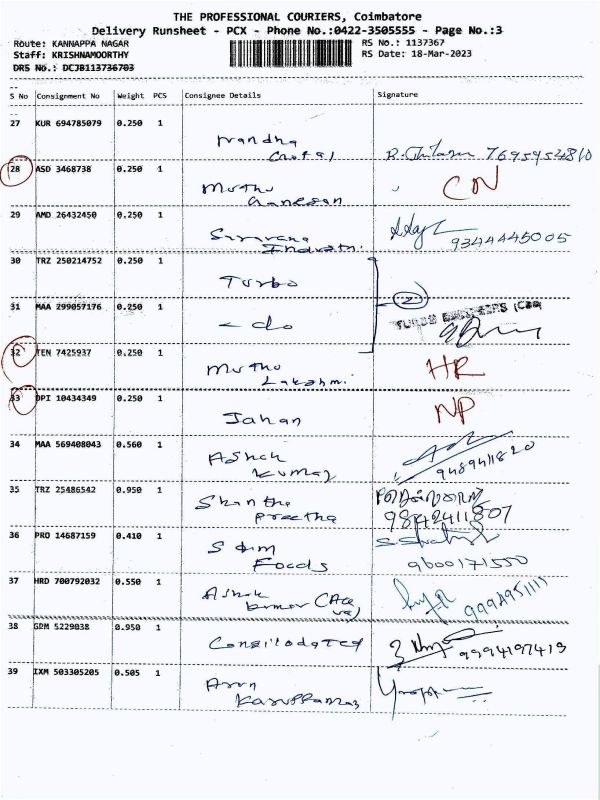 THE PROFESSIONAL COURIERS, Coimbatore
Delivery Runsheet - PCX - Phone No.:0422-3505555 - Page No.:3
Route: KANNAPPA NAGAR
RS No.: 1137367
Staff: KRISHNAMOORTHY
RS Date: 18-Mar-2023
DRS No.: DCJB113736703
S No Consignment No Weight PCS Consignee Details Signature
27 KUR 694785079 0.250 1
Nandha
7695954810
28 ASD 3468738 0.250 1
Muthu
Ganesan
CN
29 AMD 26432450 0.250 1
Saravana
9344445005
30 TRZ 250214752 0.250 1
Turbo
31 MAA 299057176 0.250 1
- do
2
32 TEN 7425937 0.250 1
Muthu
Lakshmi
HR
33 OPI 10434349 0.250 1
Jahan
NP
34 MAA 569408043 0.560 1
Ashok
Kumar
35 TRZ 25486542 0.950 1
Shantha
Preetha
9842411807
36 PRO 14687159 0.410 1
Foods
9600171550
37 HRD 700792032 0.550 1
Ashok
Kumar
9994951115
38 GDM 5229038 0.950 1
Consilodated
9994197419
39 IXM 503305205 0.505 1
Arun